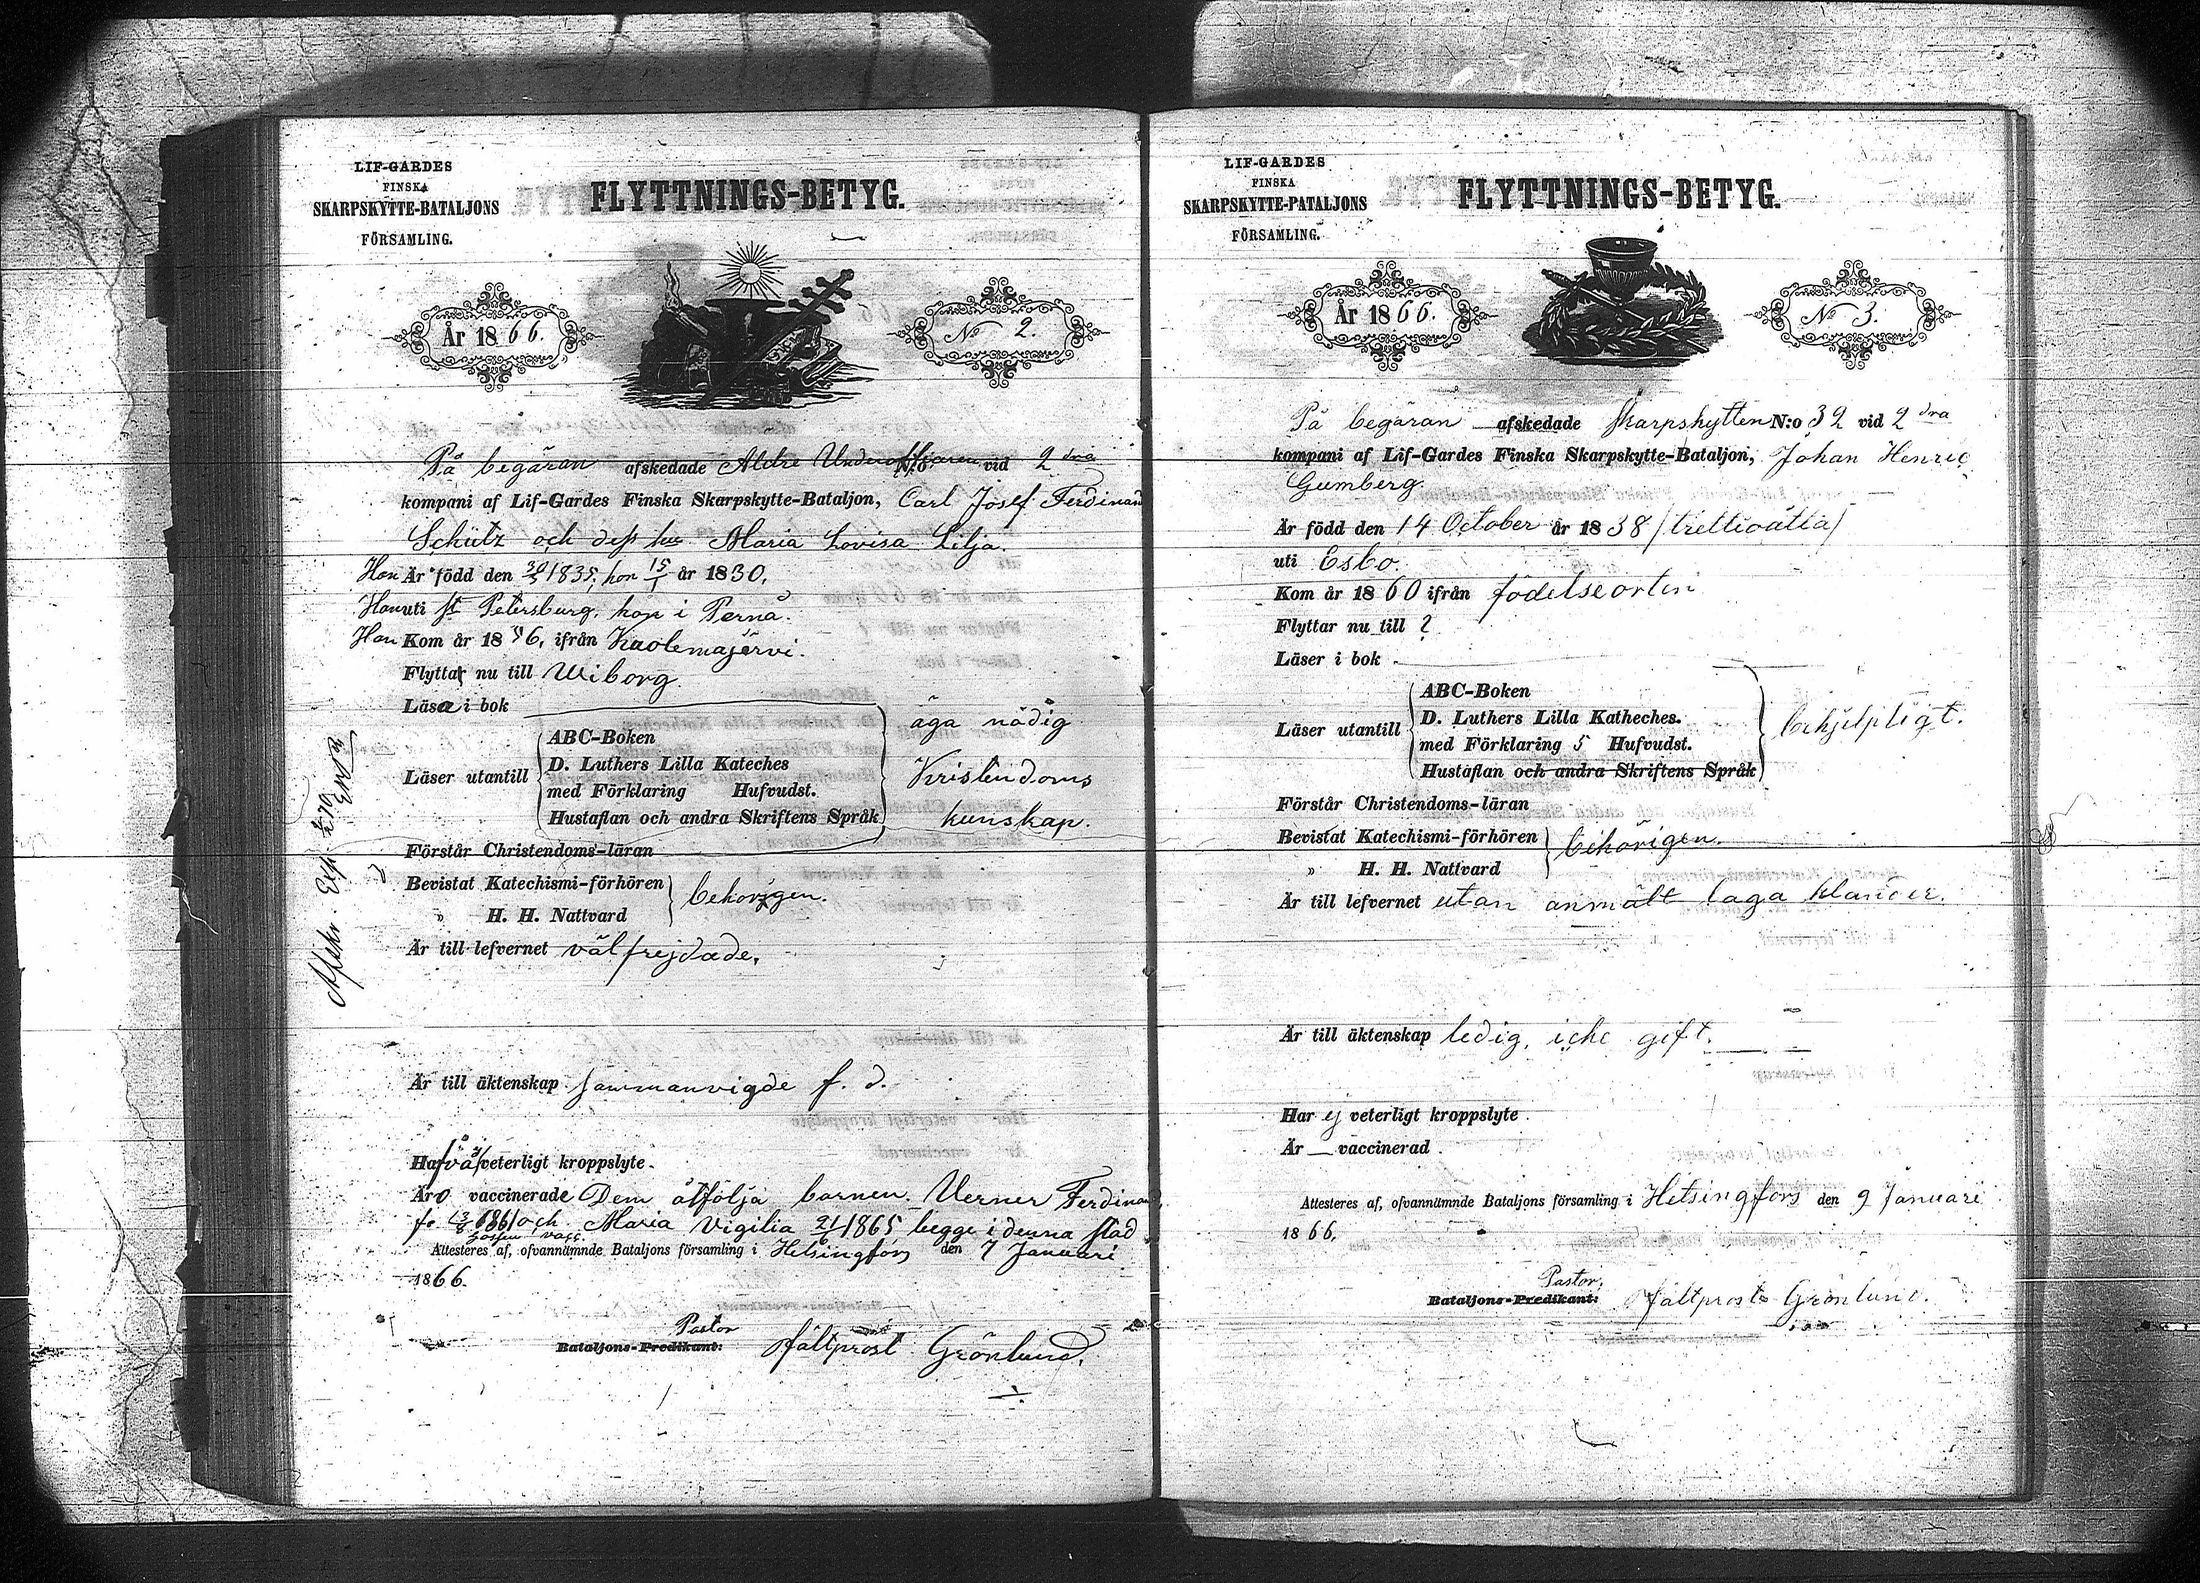 LIF-GARDES
FINSKA
SKARPSKYTTE-BATALJONS
FÖRSAMLING.
FLYTTNINGS-BETYG.
År 1866.
No 2.
På begäran afskedade Äldre Underofficeren vid 2 dra
kompani af Lif-Gardes Finska Skarpskytte-Bataljon, Carl Josef Ferdinand
Schütz och dess hu Maria Lovisa Lilja.
Han Är född den 30/5 1835, hon 15/1 år 1830.
Han uti St Petersburg, hon i Pernå.
Han Kom år 1856, ifrån Kaolemajärvi.
Flytta nu till Wiborg.
Läsa i bok
Läser utantill
ABC-Boken
D. Luthers Lilla Kateches
med Förklaring Hufvudst.
Hustaflan och andra Skriftens Språk
äga nödig
Kristendoms
kunskap.
Förstår Christendoms-läran
Bevistat Katechismi-förhören
" H. H. Nattvard
behörigen.
Är till lefvernet välfrejdade.
Är till äktenskap sammanvigde f. d.
Ha två veterligt kroppslyte.
Äro vaccinerade Dem åtfölja barnen Verner Ferdinand
fe 13/8 1861 och Maria Vigilia 21/6 1865, begge i denna stad
vacc.
Attesteres af, ofvannämnde Bataljons församling i Helsingfors den 7 Januari
1866.
Pastor
Bataljons-Predikant: Fältprost Grönlund.
LIF-GARDES
FINSKA
SKARPSKYTTE-PATALJONS
FÖRSAMLING.
FLYTTNINGS-BETYG.
År 1866.
No 3.
På begäran afskedade Skarpskytten N:o 32 vid 2 dra
kompani af Lif-Gardes Finska Skarpskytte-Bataljon, Johan Henric
Gumberg.
Är född den 14 October år 1838 /trettioåtta/
uti Esbo.
Kom år 1860 ifrån födelseorten
Flyttar nu till ?
Läser i bok
Läser utantill
ABC-Boken
D. Luthers Lilla Katheches.
med Förklaring 5 Hufvudst.
Hustaflan och andra Skriftens Språk
behjelpligt.
Förstår Christendoms-läran
Bevistat Katechismi-förhören
" H. H. Nattvard
behörigen.
Är till lefvernet utan anmält laga klander.
Är till äktenskap ledig, icke gift.
Har ej veterligt kroppslyte
Är vaccinerad.
Attesteres af, ofvannämnde Bataljons församling i Helsingfors den 9 Januari
1866.
Pastor,
Bataljons-Predikant: Fältprost Grönlund.